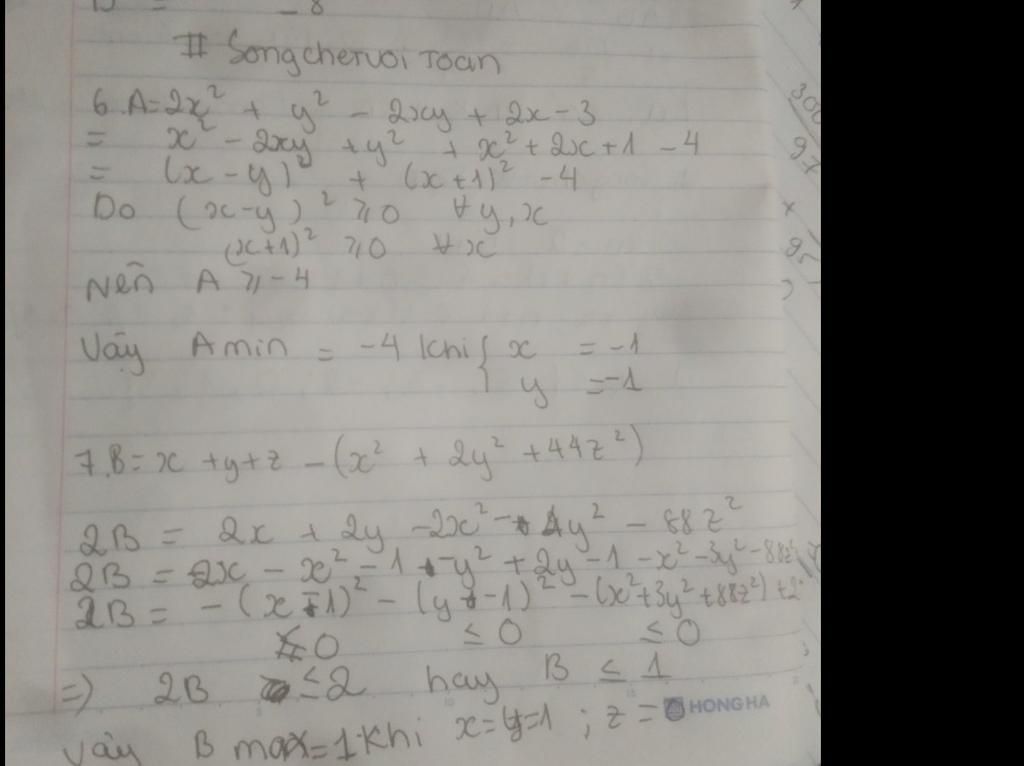 # Songchervoi Toan
6. A = 2x² + y² - 2xy + 2x - 3
= x² - 2xy + y² + x² + 2x + 1 - 4
= (x - y)² + (x + 1)² - 4
Do (x - y)² ⩾ 0 ∀ y, x
(x + 1)² ⩾ 0 ∀ x
Nên A ⩾ -4
Vậy A min = -4 khi { x = -1
y = -1
7. B = x + y + z - (x² + 2y² + 44z²)
2B = 2x + 2y - 2x² - 4y² - 88z²
2B = 2x - x² - 1 - y² + 2y - 1 - x² - 3y² - 88z²
2B = -(x - 1)² - (y - 1)² - (x² + 3y² + 88z²) + 2
≤ 0 ≤ 0 ≤ 0
=> 2B ≤ 2 hay B ≤ 1
HONG HA
Vậy B max = 1 khi x = y = 1 ; z =